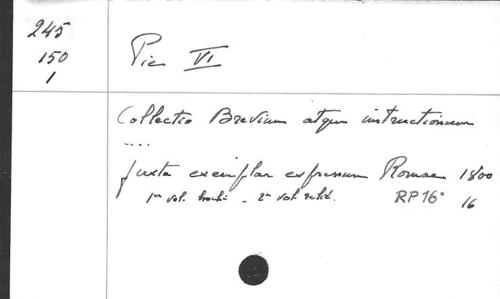 245
150
1
Pie VI
Collectio Brevium atque instructionum
....
juxta exemplar expressum Romae 1800
1er vol. broché - 2e vol. relié. RP 16° 16